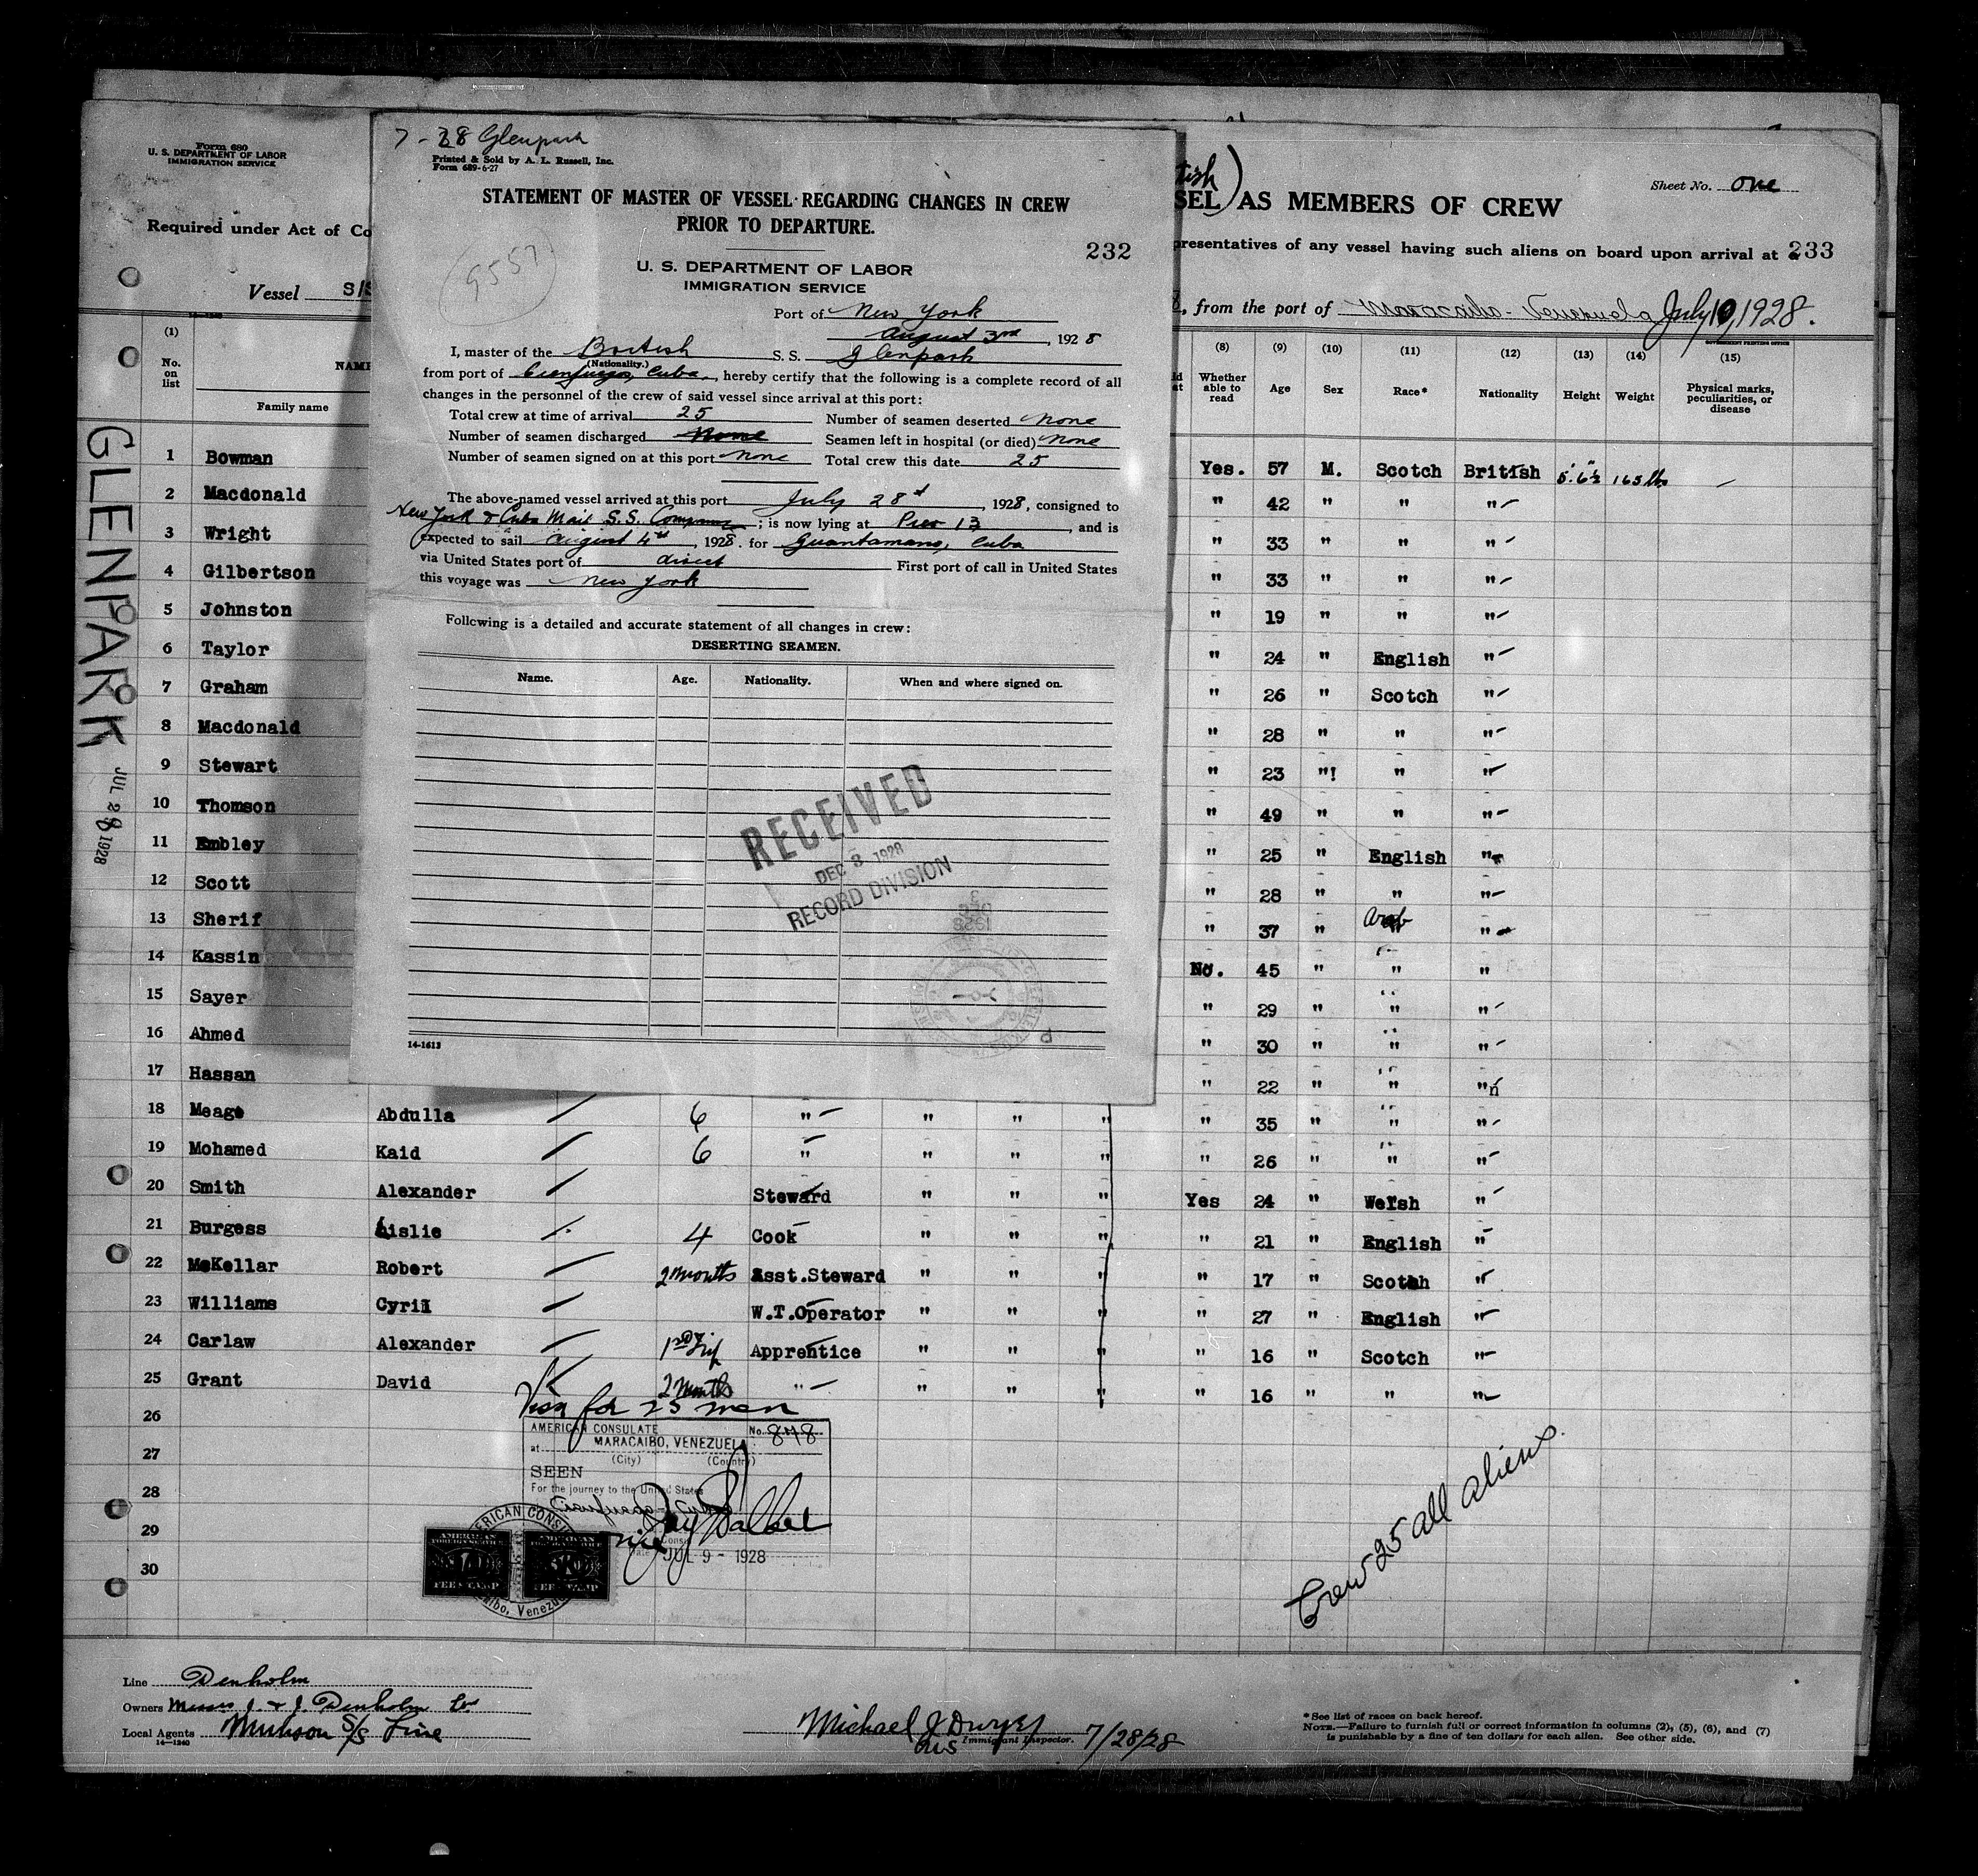 7-28 Glenpark
Printed & Sold by A. L. Russell, Inc.
Form 689-6-27
STATEMENT OF MASTER OF VESSEL REGARDING CHANGES IN CREW
PRIOR TO DEPARTURE.
232
9557
U. S. DEPARTMENT OF LABOR
IMMIGRATION SERVICE
Port of New York
August 3rd, 1928
I, master of the British S. S. Glenpark
(Nationality.)
from port of Cienfuegos, Cuba, hereby certify that the following is a complete record of all
changes in the personnel of the crew of said vessel since arrival at this port:
Total crew at time of arrival 25 Number of seamen deserted None
Number of seamen discharged None Seamen left in hospital (or died) None
Number of seamen signed on at this port None Total crew this date 25
The above-named vessel arrived at this port July 28st, 1928, consigned to
New York & Cuba Mail S.S. Company; is now lying at Pier 13, and is
expected to sail August 4th, 1928. for Guantamano, Cuba
via United States port of direct First port of call in United States
this voyage was New York
Following is a detailed and accurate statement of all changes in crew:
DESERTING SEAMEN.
Name. Age. Nationality. When and where signed on.
RECEIVED
DEC 3 1928
RECORD DIVISION
14-1613
Form 680
U. S. DEPARTMENT OF LABOR
IMMIGRATION SERVICE
Sheet No. One
tish)
SEL) AS MEMBERS OF CREW
Required under Act of Co
presentatives of any vessel having such aliens on board upon arrival at a
233
Vessel S/S
, from the port of Maracaibo - Venezuela July 10, 1928.
GOVERNMENT PRINTING OFFICE
(1) (8) (9) (10) (11) (12) (13) (14) (15)
No. on list NAME Family name Whether able to read Age Sex Race* Nationality Height Weight Physical marks, peculiarities, or disease
GLENPARK
JUL 28 1928
1 Bowman Yes. 57 M. Scotch British 5'.6½" 165 lbs —
2 Macdonald " 42 " " "
3 Wright " 33 " " "
4 Gilbertson " 33 " " "
5 Johnston " 19 " " "
6 Taylor " 24 " English "
7 Graham " 26 " Scotch "
8 Macdonald " 28 " " "
9 Stewart " 23 "! " "
10 Thomson " 49 " " "
11 Embley " 25 " English "
12 Scott " 28 " " "
13 Sherif " 37 " Arab "
14 Kassin No. 45 " " "
15 Sayer " 29 " " "
16 Ahmed " 30 " " "
17 Hassan " 22 " " "
18 Meage Abdulla 6 " " " " " 35 " " "
19 Mohamed Kaid 6 " " " " " 26 " " "
20 Smith Alexander Steward " " " Yes 24 " Welsh "
21 Burgess Lislie 4 Cook " " " " 21 " English "
22 McKellar Robert 2 months Asst.Steward " " " " 17 " Scotch "
23 Williams Cyril W.T.Operator " " " " 27 " English "
24 Carlaw Alexander 1st Trip Apprentice " " " " 16 " Scotch "
25 Grant David 2 Months " " " " " 16 " " "
26
27
28
29
30
Visa for 25 men
AMERICAN CONSULATE No. 848
at MARACAIBO, VENEZUELA
(City) (Country)
SEEN
For the journey to the United States
JUL 9 - 1928
AMERICAN FOREIGN SERVICE
FEE STAMP
AMERICAN FOREIGN SERVICE
FEE STAMP
Crew 25 all aliens.
Line Denholm
Owners Messrs J. & J. Denholm Ld
Local Agents Munson S/S Line
14—1240
Michael J Dwyer 7/28/28
Immigrant Inspector.
*See list of races on back hereof.
NOTE.—Failure to furnish full or correct information in columns (2), (5), (6), and (7)
is punishable by a fine of ten dollars for each alien. See other side.